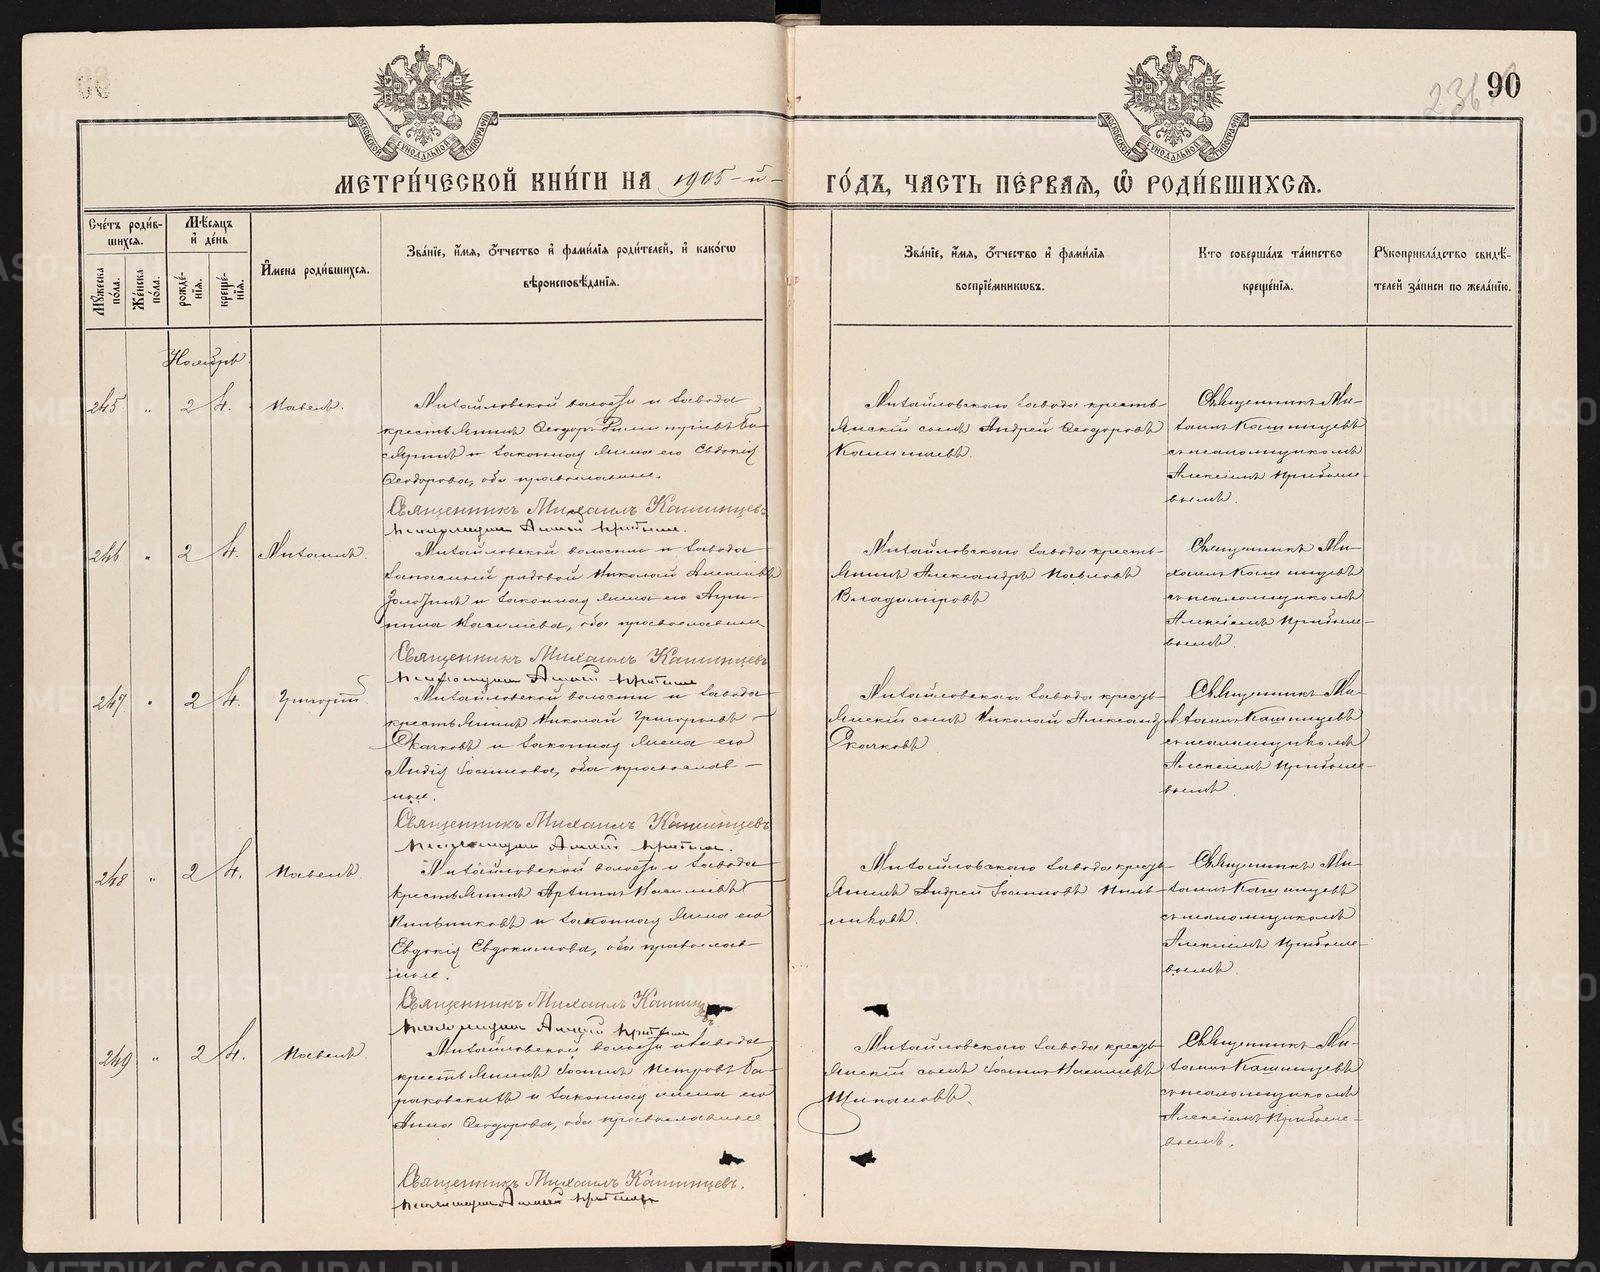 90
МЕТРИ́ЧЕСКОЙ КНИ́ГИ НА 1905-й ГО́ДЪ, ЧАСТЬ ПЕ́РВАѦ, Ѡ҆ РОДИ́ВШИХСѦ.
Сче́тъ роди́в-
шихсѧ.
Мѣ́сѧцъ
и҆ де́нь
Мꙋ́жеска по́ла.
Же́нска по́ла.
рожде́-
нїѧ.
креще́-
нїѧ.
И҆мена роди́вшихсѧ.
Зва́нїе, и҆́мѧ, ѻ҆́тчество и҆ фами́лїѧ роди́телей, и҆ како́гѡ
вѣроисповѣ́данїѧ.
Зва́нїе, и҆́мѧ, ѻ҆́тчество и҆ фами́лїѧ
воспрїе́мникѡвъ.
Кто соверша́лъ та́инство
креще́нїѧ.
Рꙋкоприкла́дство свидѣ́-
телей за́писи по жела́нїю.
Ноябрь
245 " 2 4. Павелъ.
Михайловской волости и завода
крестьянинъ Ѳеодоръ
и законная жена его Евдокія
Ѳеодорова, оба православные.
Священникъ Михаилъ Кашинцевъ
Михайловскаго завода кресть-
янскій сынъ Андрей Ѳеодоровъ
Священникъ Ми-
хаилъ Кашинцевъ
съ псаломщикомъ
Алексіемъ Прибыле-
вымъ.
246 " 2 4. Михаилъ.
Михайловской волости и завода
запасный рядовой Николай Алексіевъ
и законная жена его Агри-
пина Василіева, оба православные
Священникъ Михаилъ Кашинцевъ
Михайловскаго завода кресть-
янинъ Александръ Павловъ
Владиміровъ
Священникъ Ми-
хаилъ Кашинцевъ
съ псаломщикомъ
Алексіемъ Прибыле-
вымъ.
247 " 2 4. Григорій.
Михайловской волости и завода
крестьянинъ Николай Григорьевъ
Скачковъ и законная жена его
Лидія Іоаннова, оба православ-
ные.
Священникъ Михаилъ Кашинцевъ
Михайловскаго завода кресть-
янскій сынъ Николай Александр
Скачковъ
Священникъ Ми-
хаилъ Кашинцевъ
съ псаломщикомъ
Алексіемъ Прибыле-
вымъ.
248 " 2 4. Павелъ
Михайловской волости и завода
крестьянинъ Архипъ Василіевъ
Пильниковъ и законная жена его
Евдокія Евдокимова, оба православ-
ные.
Священникъ Михаилъ Кашинцевъ
Михайловскаго завода кресть-
янинъ Андрей Іоанновъ Пиль-
никовъ.
Священникъ Ми-
хаилъ Кашинцевъ
съ псаломщикомъ
Алексіемъ Прибыле-
вымъ.
249 " 2 4. Павелъ
Михайловской волости и завода
крестьянинъ Іоаннъ Петровъ Ба-
и законная жена его
Анна Ѳеодорова, оба православные
Священникъ Михаилъ Кашинцевъ.
Михайловскаго завода кресть-
янскій сынъ Іоаннъ Василіевъ
Шипановъ.
Священникъ Ми-
хаилъ Кашинцевъ
съ псаломщикомъ
Алексіемъ Прибыле-
вымъ.
METRIKI.GASO-URAL.RU